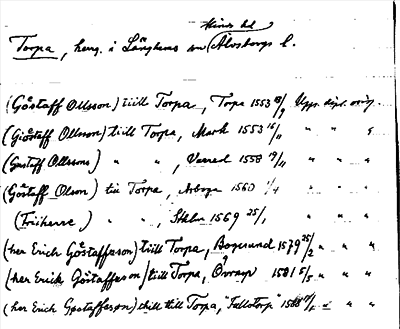 Kinds hd
Torpa, herrg. i Länghems sn (Älvsborgs l.
(Göstaff Ollsson) tiill Torpa, Torpa 1553 18/9 Upps. dipl. orig.
(Giöstaff Ollsson) tiill Torpa, Mark 1553 16/11 " " "
(Gustaff Ollssons) " " , Vared 1558 19/11 " " "
(Göstaff Olson) tii Torpa, Arboga 1560 1/4 " " "
(Friiherre) " " , Sthlm 1569 25/1 " " "
(her Erich Göstaffsson) tiill Torpa, Bogesund 1579 25/2 " " "
(her Erick Göstaffsson) till Torpa, 1581 5/8 " " "
(her Erich Gøstaffssøn) till Torpa, "Falletorp" 1588 " "